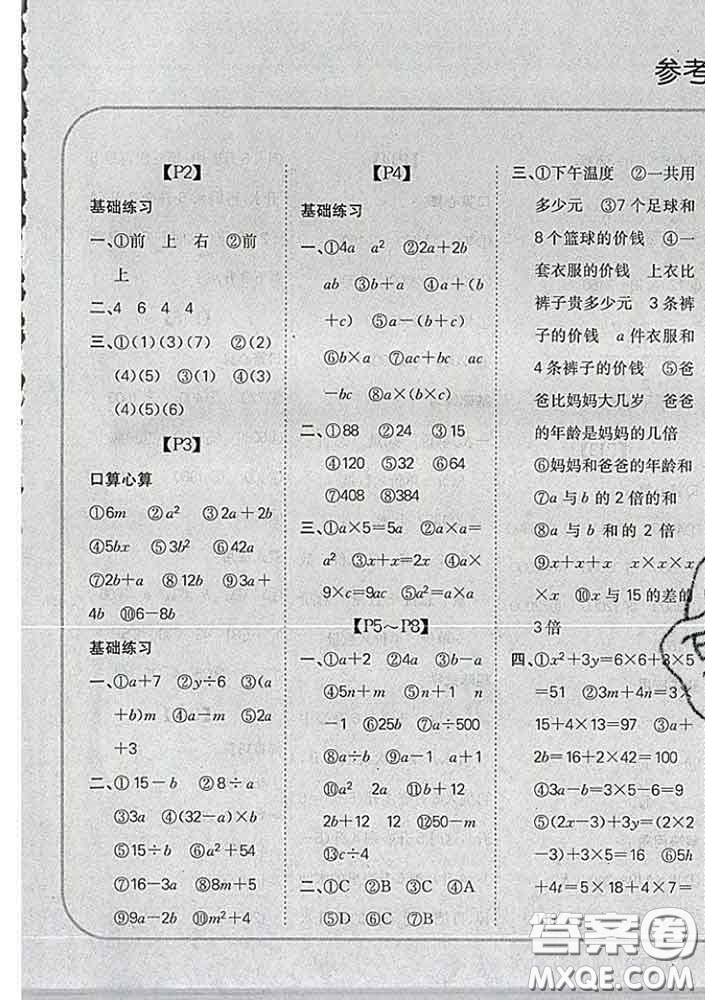 参考
【P2】
基础练习
一、①前 上 右 ②前
上
二、4 6 4 4
三、①(1)(3)(7) ②(2)
(4)(5) ③(1) ④(3)
(4)(5)(6)
【P3】
口算心算
①6m ②a² ③2a+2b
④5bx ⑤3b² ⑥42a
⑦2b+a ⑧12b ⑨3a+
4b ⑩6-8b
基础练习
一、①a+7 ②y÷6 ③(a
+b)m ④a-m ⑤2a
+3
二、①15-b ②8÷a
③3a ④(32-a)×b
⑤15÷b ⑥a²+54
⑦16-a ⑧5+2x
⑨9a-b ⑩m²+4
【P4】
基础练习
一、①4a a² ②2a+2b
ab ③b+a ④a+(b
+c) ⑤a-(b+c)
⑥b×a ⑦ac+bc ac
-bc ⑧a×(b×c)
二、①88 ②24 ③15
④120 ⑤32 ⑥64
⑦408 ⑧384
三、①a×5=5a ②a×a=
a² ③x+x=2x ④a×
9×c=9ac ⑤a²=a×a
【P5~P8】
一、①a+2 ②4a ③b-a
④5n+m ⑤n+1 n
-1 ⑥25b ⑦a÷500
⑧a÷b ⑨a-1 a+1
⑩a² 2a ⑪b+12
2b+12 12 ⑫50-m
⑬c÷4
二、①C ②B ③C ④A
⑤D ⑥C ⑦B
三、①下午温度 ②一共用
多少元 ③7个足球和
8个篮球的价钱 ④一
套衣服的价钱 上衣比
裤子贵多少元 3条裤
子的价钱 a件衣服和
4条裤子的价钱 ⑤爸
爸比妈妈大几岁 爸爸
的年龄是妈妈的几倍
⑥妈妈和爸爸的年龄和
⑦a与b的2倍的和
⑧a与b和的2倍
⑨x+x+x x×x×x
×x ⑩x与15的差的
3倍
四、①x²+3y=6×6+3×5
=51 ②3m+4n=3×
15+4×13=97 ③a+
2b=16+2×42=100
④3a-b=3×5-6=9
⑤(2x-3)+3y=(2×2
-3)+3×5=16 ⑥5h
+4t=5×18+4×7=
答案圈
MXQE.COM